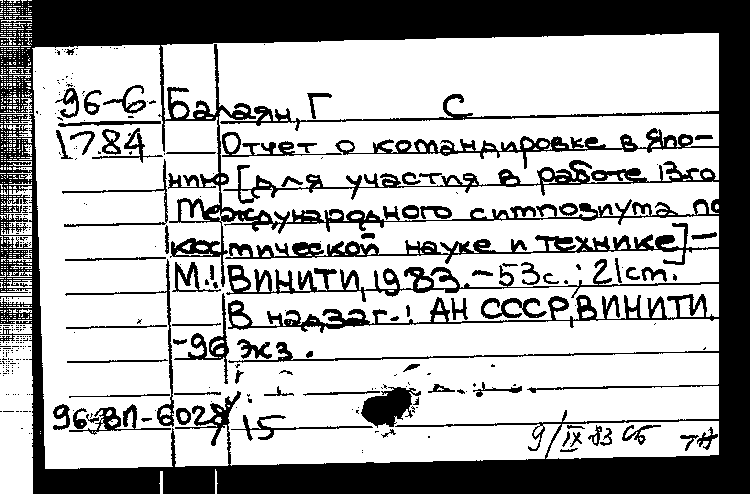 96-6 Балаян, Г С
1784 Отчет о командировке в Япо-
нию [для участия в работе 13-го
Международного симпозиума по
космической науке и технике] -
М.: ВИНИТИ, 1983. - 53с.; 21см.
В надзаг.: АН СССР, ВИНИТИ.
-96 экз.
96-ВП-6028/15
9/IX 83 СБ